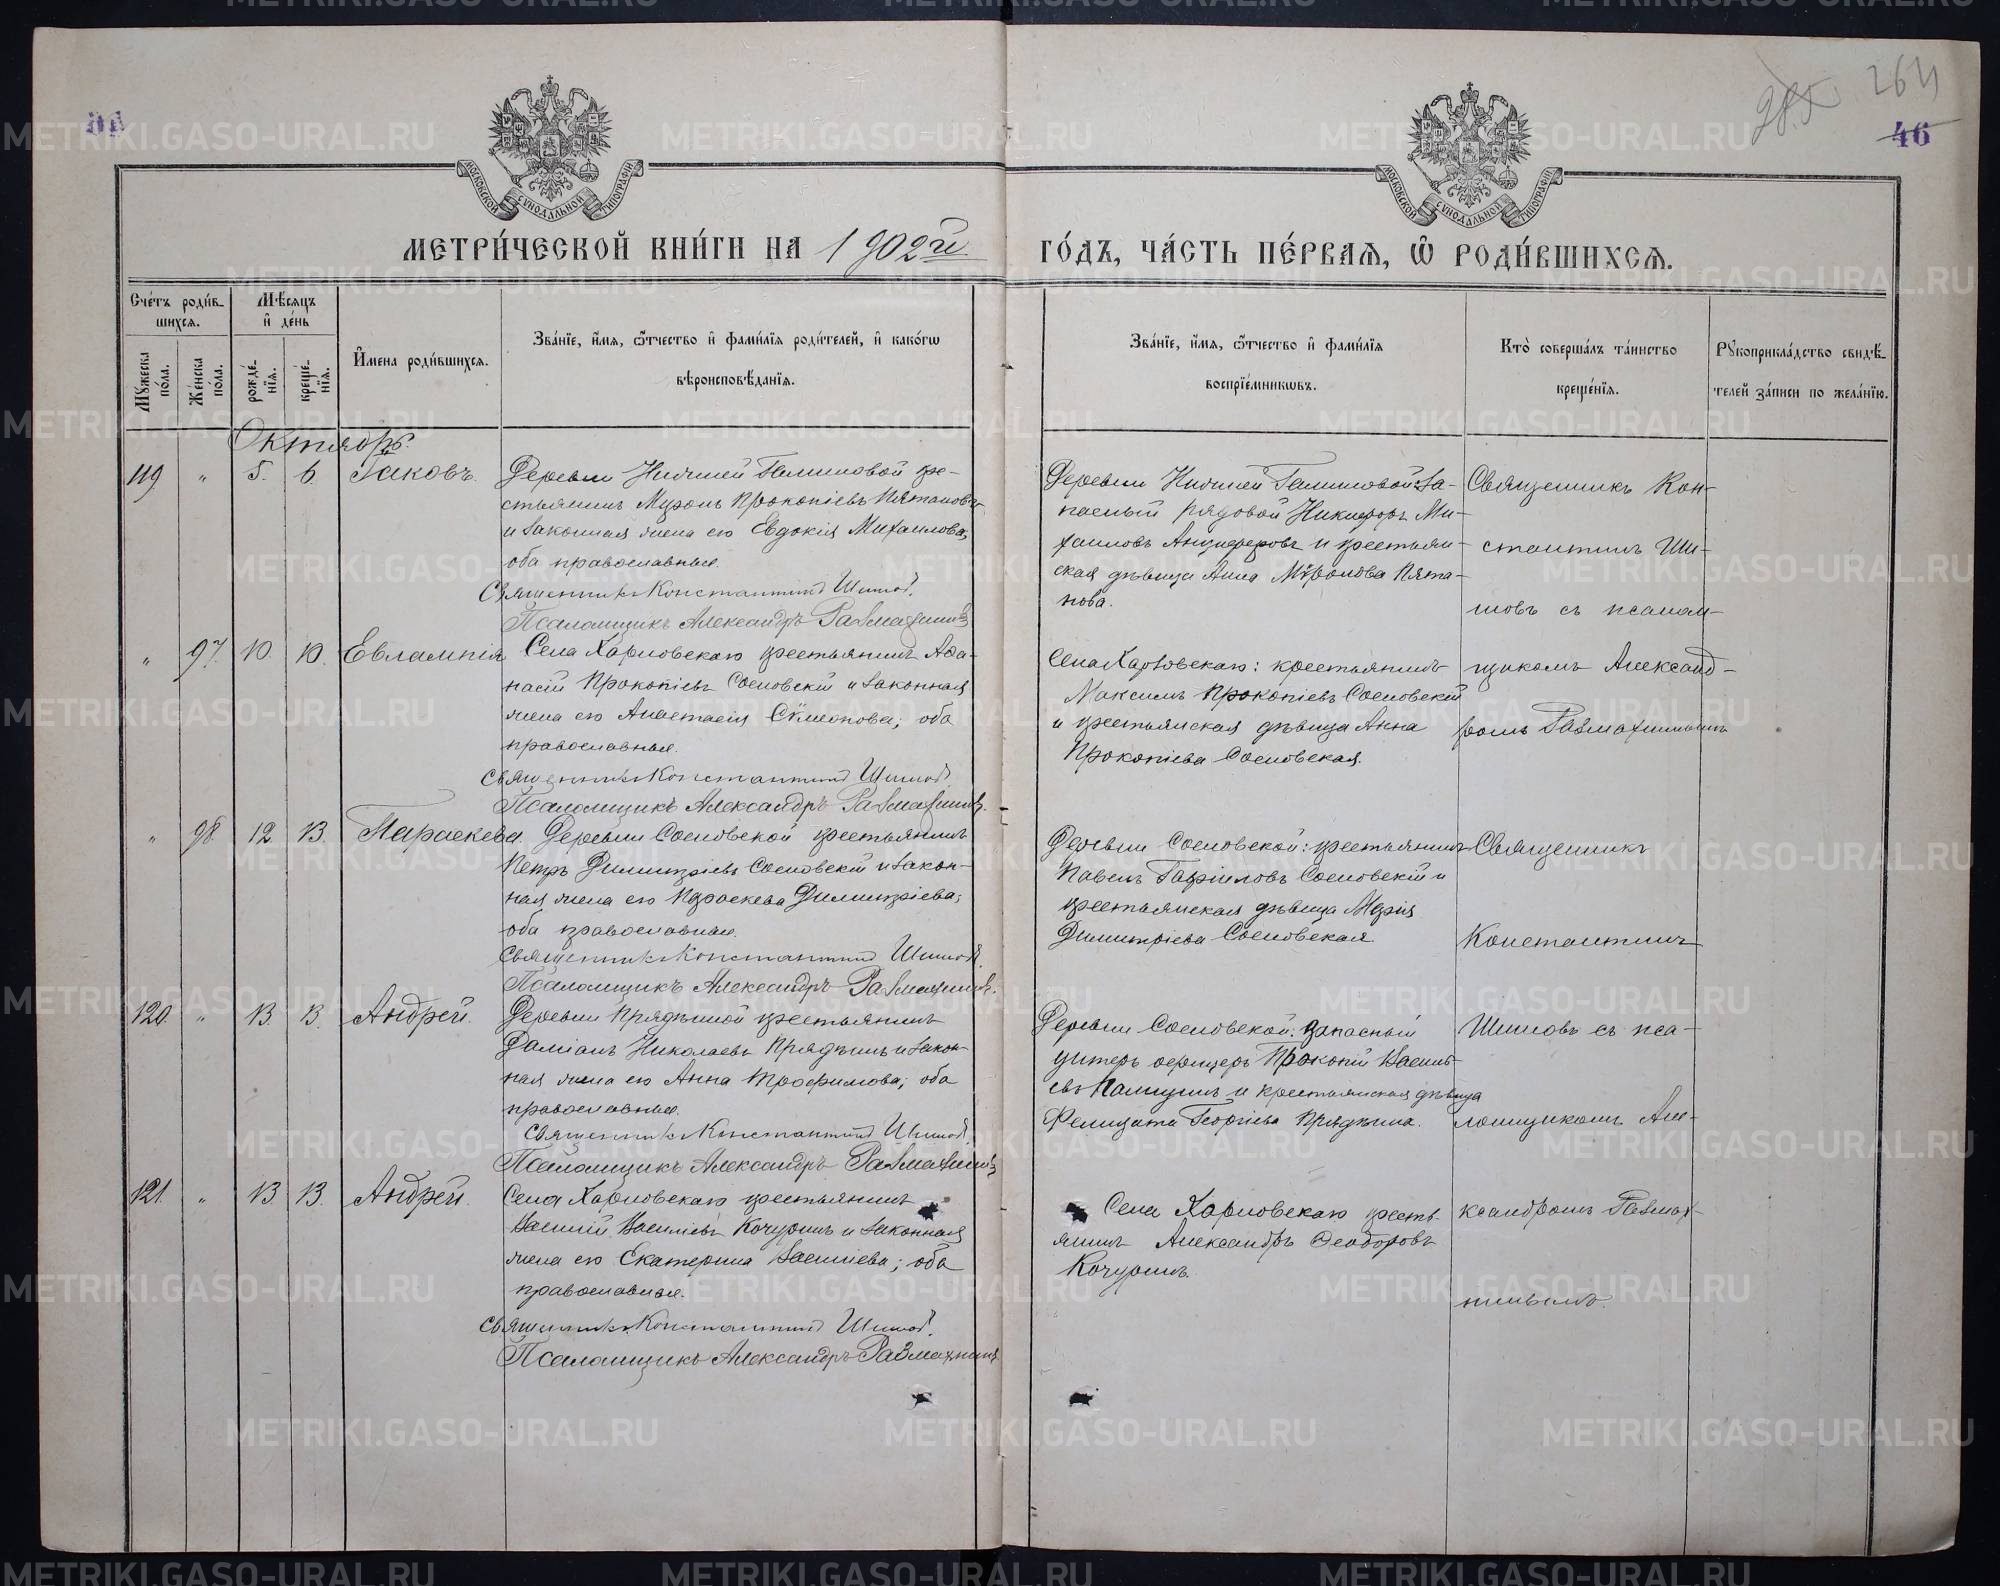 264
285
46
МОСКОВСКОЙ СѴНОДАЛЬНОЙ ТИПОГРАФІИ
МОСКОВСКОЙ СѴНОДАЛЬНОЙ ТИПОГРАФІИ
МЕТРИ́ЧЕСКОЙ КНИ́ГИ НА 1902й
ГО́ДЪ, ЧА́СТЬ ПЕ́РВАЯ, Ѡ҆ РОДИ́ВШИХСЯ.
Сче́тъ роди́в-
шихся.
Мꙋжеска по́ла.
Же́нска по́ла.
Мѣ́сяцъ
и҆ де́нь
рожде́-
нїя.
креще́-
нїя.
И҆мена роди́вшихся.
Зва́нїе, и҆́мя, ѻ҆́тчество и҆ фами́лїя роди́телей, и҆ како́гѡ
вѣроисповѣ́данїя.
Зва́нїе, и҆́мя, ѻ҆́тчество и҆ фами́лїя
воспрїе́мникѡвъ.
Кто̀ соверша́лъ та́инство
креще́нїя.
Рꙋкоприкла́дство свидѣ́-
телей за́писи по жела́нїю.
Октябрь.
119. " 5. 6. Іаковъ.
Деревни Нижней Галишовой кре-
стьянинъ Миронъ Прокопіевъ Пятановъ
и законная жена его Евдокія Михаилова,
оба православные.
Священникъ Константинъ Шишовъ.
Псаломщикъ Александръ Размахнинъ
Деревни Нижней Галишовой: за-
пасный рядовой Никифоръ Ми-
хаиловъ Анциферовъ и крестьян-
ская дѣвица Анна Мѵронова Пята-
нова.
" 97. 10. 10. Евлампія
Села Харловскаго крестьянинъ Аѳа-
насій Прокопіевъ Сосновскій и законная
жена его Анастасія Сѵмеонова; оба
православные.
Священникъ Константинъ Шишовъ
Псаломщикъ Александръ Размахнинъ.
Села Харловскаго: крестьянинъ
Максимъ Прокопіевъ Сосновскій
и крестьянская дѣвица Анна
Прокопіева Сосновская.
" 98. 12. 13. Параскева.
Деревни Сосновской крестьянинъ
Петръ Димитріевъ Сосновскій и закон-
ная жена его Параскева Димитріева;
оба православные.
Священникъ Константинъ Шишовъ.
Псаломщикъ Александръ Размахнинъ.
Деревни Сосновской: крестьянинъ
Павелъ Гавріиловъ Сосновскій и
крестьянская дѣвица Марія
Димитріева Сосновская
120. " 13. 13. Андрей.
Деревни Прядѣиной крестьянинъ
Даміанъ Николаевъ Прядѣинъ и закон-
ная жена его Анна Трофимова; оба
православные.
Священникъ Константинъ Шишовъ.
Псаломщикъ Александръ Размахнинъ
Деревни Сосновской: запасный
унтеръ офицеръ Прокопій Василь-
евъ и крестьянская дѣвица
Фелицата Георгіева Прядѣина.
121. " 13. 13. Андрей.
Села Харловскаго крестьянинъ
Василій Василіевъ Кочуринъ и законная
жена его Екатерина Василіева; оба
православные.
Священникъ Константинъ Шишовъ.
Псаломщикъ Александръ Размахнинъ.
Села Харловскаго кресть-
янинъ Александръ Ѳеодоровъ
Кочуринъ.
Священникъ Кон-
стантинъ Ши-
шовъ съ псалом-
щикомъ Александ-
ромъ Размахнинымъ
Священникъ
Константинъ
Шишовъ съ пса-
ломщикомъ Але-
ксандромъ Размах-
нинымъ.